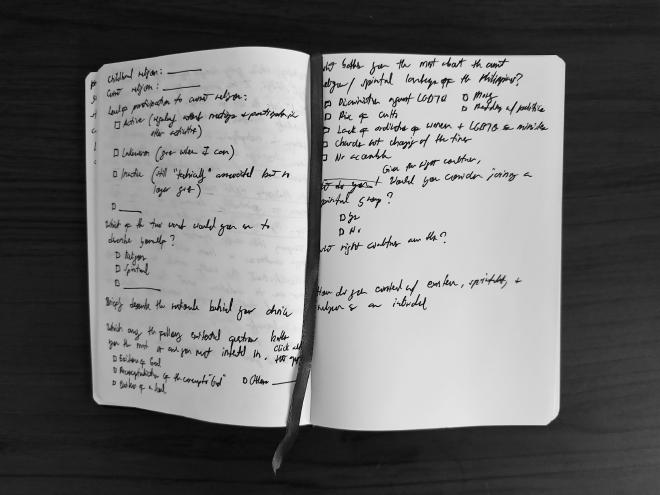 Childhood religion: ______
Current religion: ______
Level of participation to current religion:
□ Active (regularly attend meetings + participate in
other activities)
□ Lukewarm (go when I can)
□ Inactive (still "technically" associated but no
longer go)
□ ______
Which of the two words would you use to
describe yourself?
□ Religious
□ Spiritual
□ ______
Briefly describe the rationale behind your choice
Which among the following existential questions bother
you the most or are you most interested in.
□ Existence of God
□ of the concept of "God"
□ Others ____
□ of a Soul
What bother you the most about the current
religious / spiritual landscape of the Philippines?
□ Discrimination against LGBTQ
□ Money
□ Rise of cults
□ w/ politics
□ Lack of ordination of women + LGBTQ as ministers
□ Church not changing w/ the times
□ No
Given the right conditions,
would you consider joining a
spiritual group?
□ Yes
□ No
What right conditions are these?
How do you w/ , spirituality, +
religion as an individual